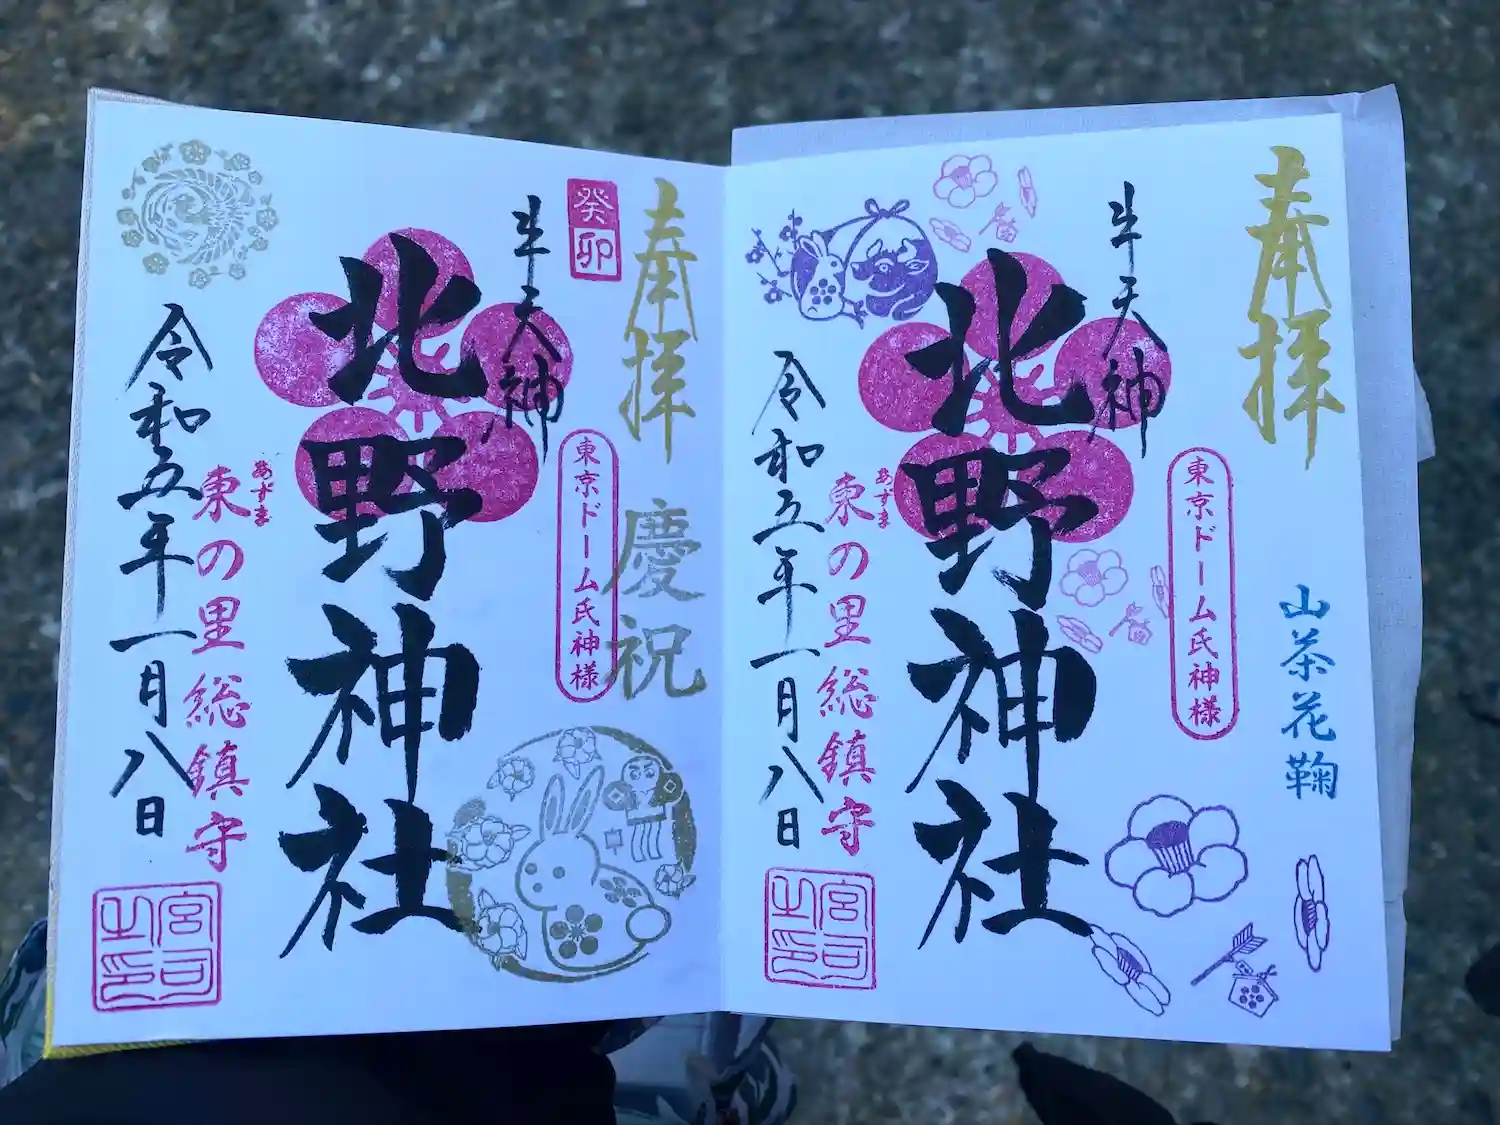 奉拝
山茶花鞠
牛天神
東京ドーム氏神様
北野神社
あずま
東の里総鎮守
令和五年一月八日
宮司之印
奉拝
慶祝
癸卯
牛天神
東京ドーム氏神様
北野神社
あずま
東の里総鎮守
令和五年一月八日
宮司之印